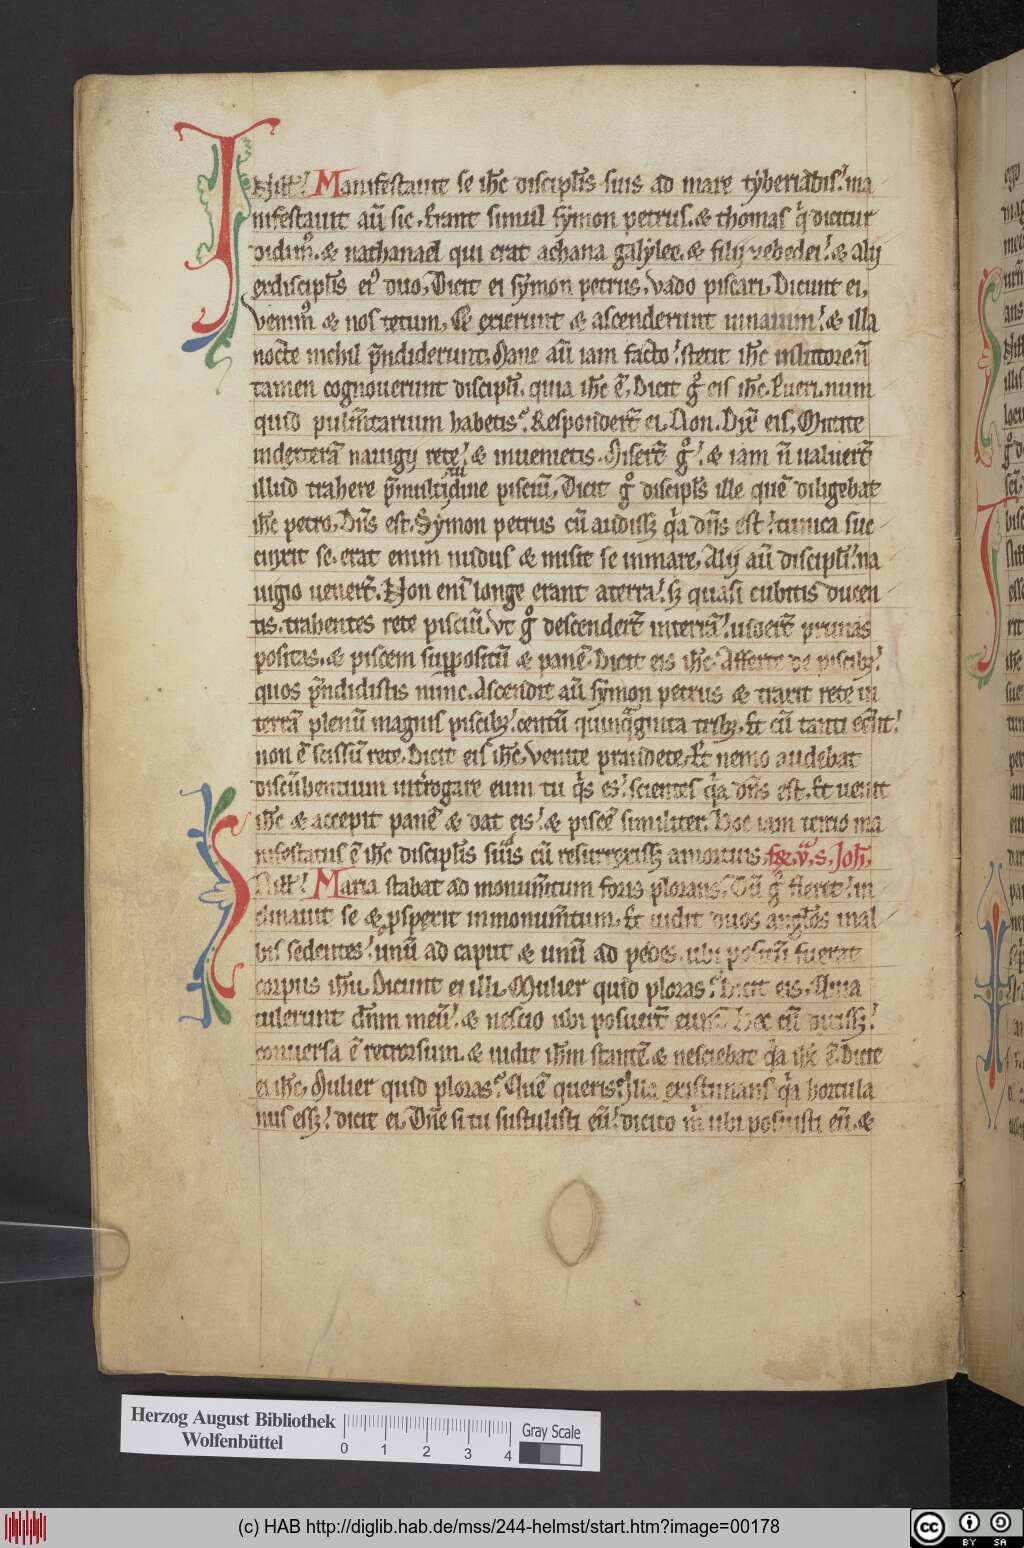 I N ill̅t. Manifestauit se ih̅c discipl̅is suis ad mare tyberiadis. ma
nifestauit au̅ sic. Erant simul symon petrus. & thomas q̇ dicitur
didim⁹. & nathanael qui erat achana galylee. & filij zebedei. & alij
exdiscipl̅is ei⁹ duo. Dicit ei symon petrus. Vado piscari. Dicunt ei.
venim⁹ & nos tecum. Et exierunt & ascenderunt innauim. & illa
nocte nichil p̅ndiderunt. Mane au̅ iam facto. stetit ih̅c inlittore. n̅
tamen cognouerunt discipl̅i. quia ih̅c e̅. Dicit g̊ eis ih̅c. Pueri. num
quid pulm̅tarium habetis? Responder̅t ei. Non. Dix̅ eis. Mittite
indextera̅ nauigij rete. & inuenietis. Miser̅t g̊. & iam n̅ ualuer̅t
illud trahere p̅multitudine pisciu̅. Dicit g̊ discipl̅s ille que̅ diligebat
ih̅c petro. Dn̅s est. Symon petrus cu̅ audiss& q̇a dn̅s est. tunica suc
cinxit se. erat enim nudus & misit se inmare. Alij au̅ discipl̅i. na
uigio uener̅t. Non eni̅ longe erant aterra. s& quasi cubitis ducen
tis. trahentes rete pisciu̅. Vt g̊ descender̅t interra̅. uider̅t prunas
positas. & piscem suppositu̅ & pane̅. Dicit eis ih̅c. Afferte de piscib&.
quos p̅ndidistis nunc. Ascendit au̅ symon petrus & traxit rete in
terra̅ plenu̅ magnis piscib&. centu̅ quinq̇ginta trib&. Et cu̅ tanti e̅ent.
non e̅ scissu̅ rete. Dicit eis ih̅c. Venite prandete. Et nemo audebat
discu̅bentium int̊rogare eum tu q̇s es. scientes q̇a dn̅s est. Et uenit
ih̅c & accepit pane̅ & dat eis. & pisce̅ similiter. Hoc iam tercio ma
nifestatus e̅ ih̅c discipl̅is suis cu̅ resurrexiss& amortuis. fer. v. s. Joh̅.
S N ill̅t. Maria stabat ad monum̅tum foris plorans. Du̅ g̊ fleret. in
clinauit se & p̱spexit inmonum̅tum. Et uidit duos angl̅os inal
bis sedentes. unu̅ ad caput & unu̅ ad pedes. ubi positu̅ fuerat
corpus ih̅u. Dicunt ei illi. Mulier quid ploras? Dicit eis. Quia
tulerunt dn̅m meu̅. & nescio ubi posuer̅t eum. Hec cu̅ dixiss&.
conuersa e̅ retrorsum. & uidit ih̅m stante̅. & nesciebat q̇a ih̅c e̅. Dicit
ei ih̅c. Mulier quid ploras? Que̅ queris? Illa existimans q̇a hortula
nus ess&. dicit ei. Dn̅e si tu sustulisti eu̅. dicito m̊ ubi posuisti eu̅. &
Herzog August Bibliothek
Wolfenbüttel
0 1 2 3 4
Gray Scale
(c) HAB http://diglib.hab.de/mss/244-helmst/start.htm?image=00178
cc BY SA